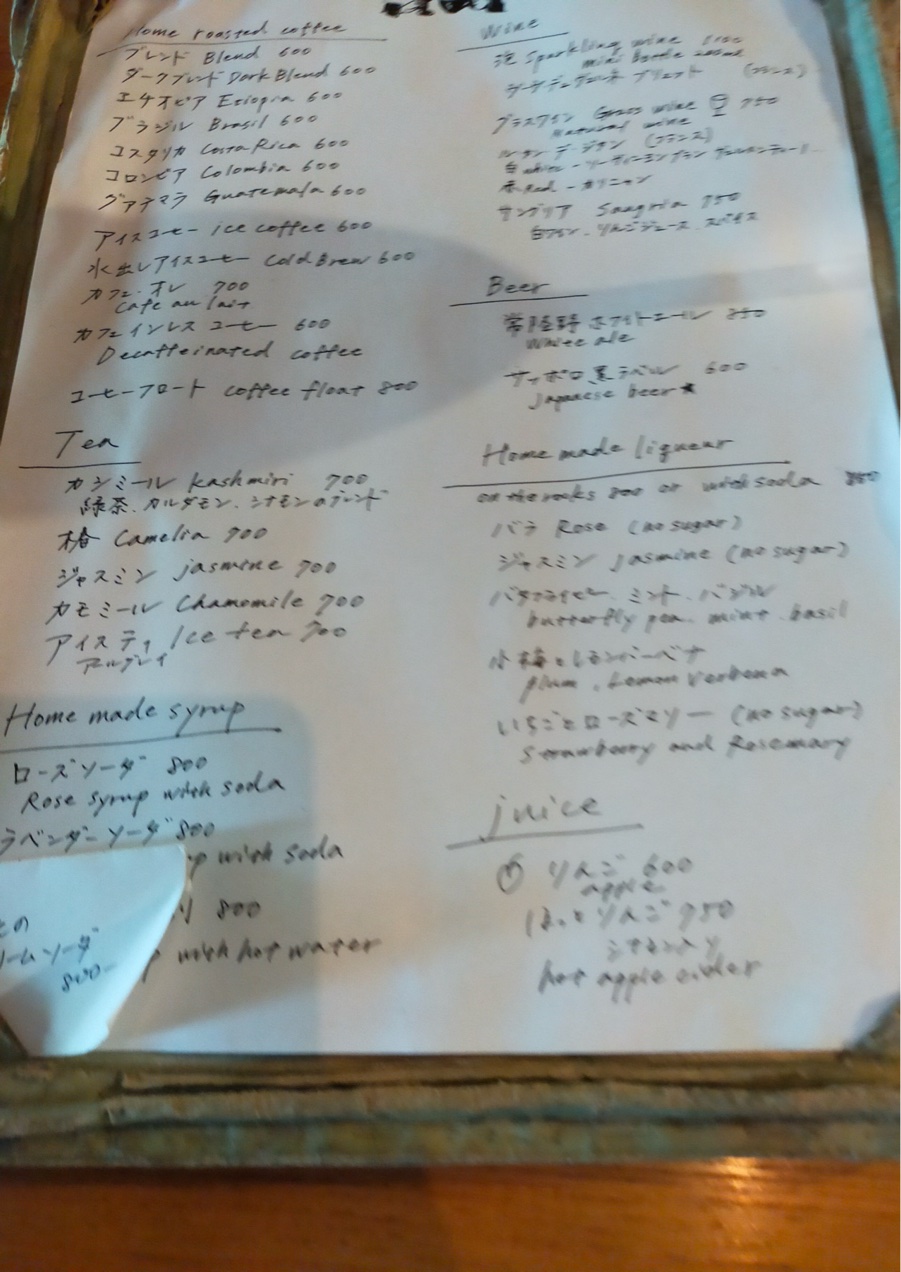 Home roasted coffee
ブレンド Blend 600
ダークブレンド Dark Blend 600
エチオピア Etiopia 600
ブラジル Brasil 600
コスタリカ Costa Rica 600
コロンビア Colombia 600
グァテマラ Guatemala 600
アイスコーヒー ice coffee 600
水出しアイスコーヒー Cold Brew 600
カフェ・オレ 700
Cafe au lait
カフェインレス コーヒー 600
Decaffeinated coffee
コーヒーフロート coffee float 800
Tea
カシミール kashmiri 700
緑茶、カルダモン、シナモンのブレンド
椿 Camelia 700
ジャスミン jasmine 700
カモミール Chamomile 700
アイスティ Ice tea 700
アールグレイ
Home made syrup
ローズソーダ 800
Rose syrup with soda
ラベンダーソーダ 800
p with soda
800
p with hot water
との
ームソーダ
800-
Wine
泡 Sparkling wine
mini bottle 200ml
(フランス)
グラスワイン Grass wine 750
Natural wine
(フランス)
白 white -
赤 Red - カリニャン
サングリア Sangria 750
白ワイン、りんごジュース、スパイス
Beer
常陸野 ホワイトエール 850
White ale
サッポロ黒ラベル 600
Japanese beer★
Home made liqueur
on the rocks 800 or with soda 850
バラ Rose (no sugar)
ジャスミン jasmine (no sugar)
バタフライピー、ミント、バジル
butterfly pea. mint. basil
小梅とレモンバーベナ
plum, Lemon verbena
いちごとローズマリー (no sugar)
Strawberry and Rosemary
juice
りんご 600
apple
ほっとりんご 750
シナモン入り
hot apple cider